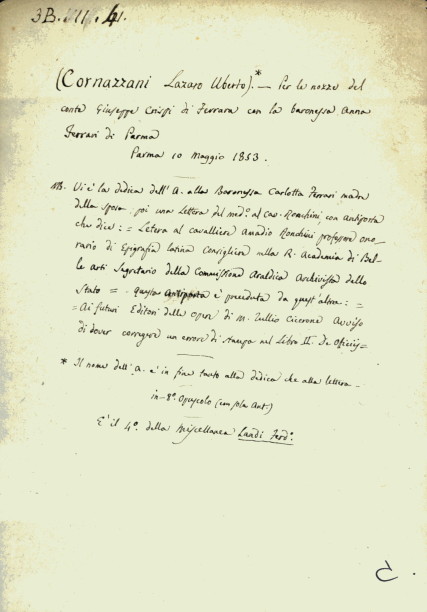 3B. VII. 4.
(Cornazzani Lazaro Uberto).* — Per le nozze del
conte Giuseppe Crispi di Ferrara con la baronessa Anna
Ferrari di Parma
Parma 10 Maggio 1853.
NB. Vi è la dedica dell'A. alla Baronessa Carlotta Ferrari madre
della Sposa, poi una Lettera del medº. al cav. Ronchini, con Antiporta
che dice: = Letera al cavalliere Amadio Ronchini professore ono-
rario di Epigrafia latina Consigliere nella R. Academia di Bel-
le arti Segretario della Commissione Araldica Archivista dello
Stato = . Questa Antiporta è preceduta da quest'altra: =
= Ai futuri Editori delle opere di M. Tullio Cicerone Avviso
di dover corregere un errore di stampa nel Libro II. De Officiis =
* Il nome dell'A. è in fine tanto alla dedica che alla lettera —
in-8º. Opuscolo (con sola Ant.)
E' il 4º. della Miscellanea Landi Ferdº.
C.